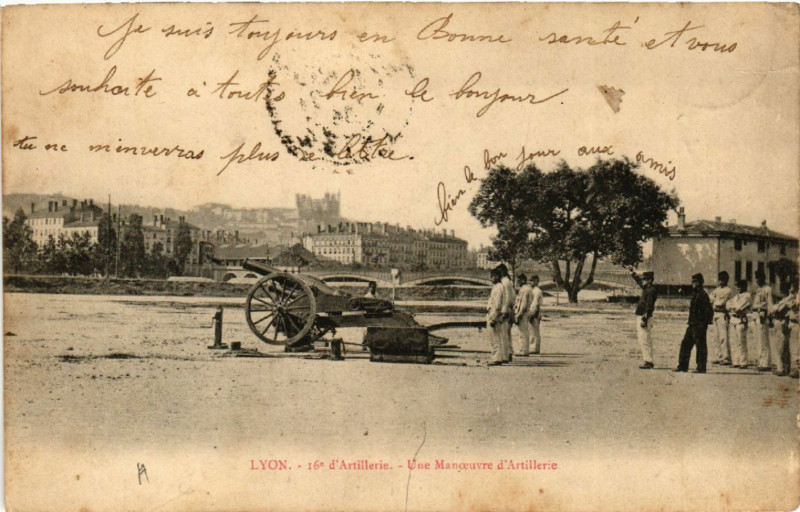 Je suis toujours en Bonne santé et vous
souhaite à toutes bien le bonjour.
tu ne m'enverras plus de lettre.
bien le bon jour aux amis
LYON. - 16e d'Artillerie. - Une Manœuvre d'Artillerie